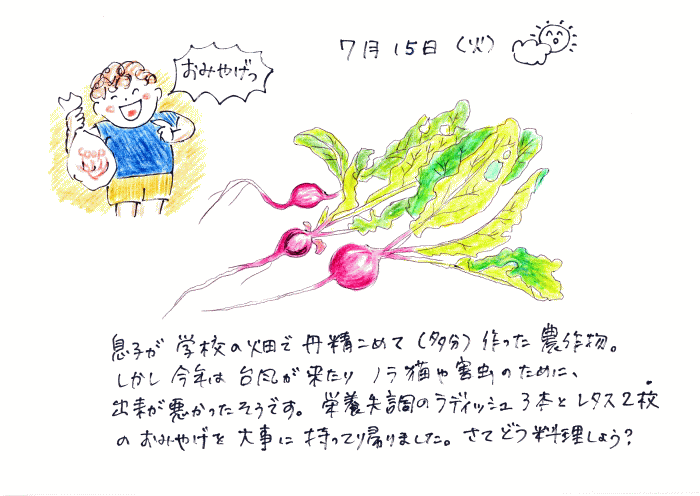 7月15日（火）
おみやげっ
coop
息子が 学校の畑で 丹精こめて（多分）作った 農作物。
しかし 今年は 台風が来たり ノラ猫や害虫のために、
出来が悪かったそうです。栄養失調のラディッシュ3本とレタス2枚
のおみやげを 大事に 持って帰りました。さてどう料理しよう？